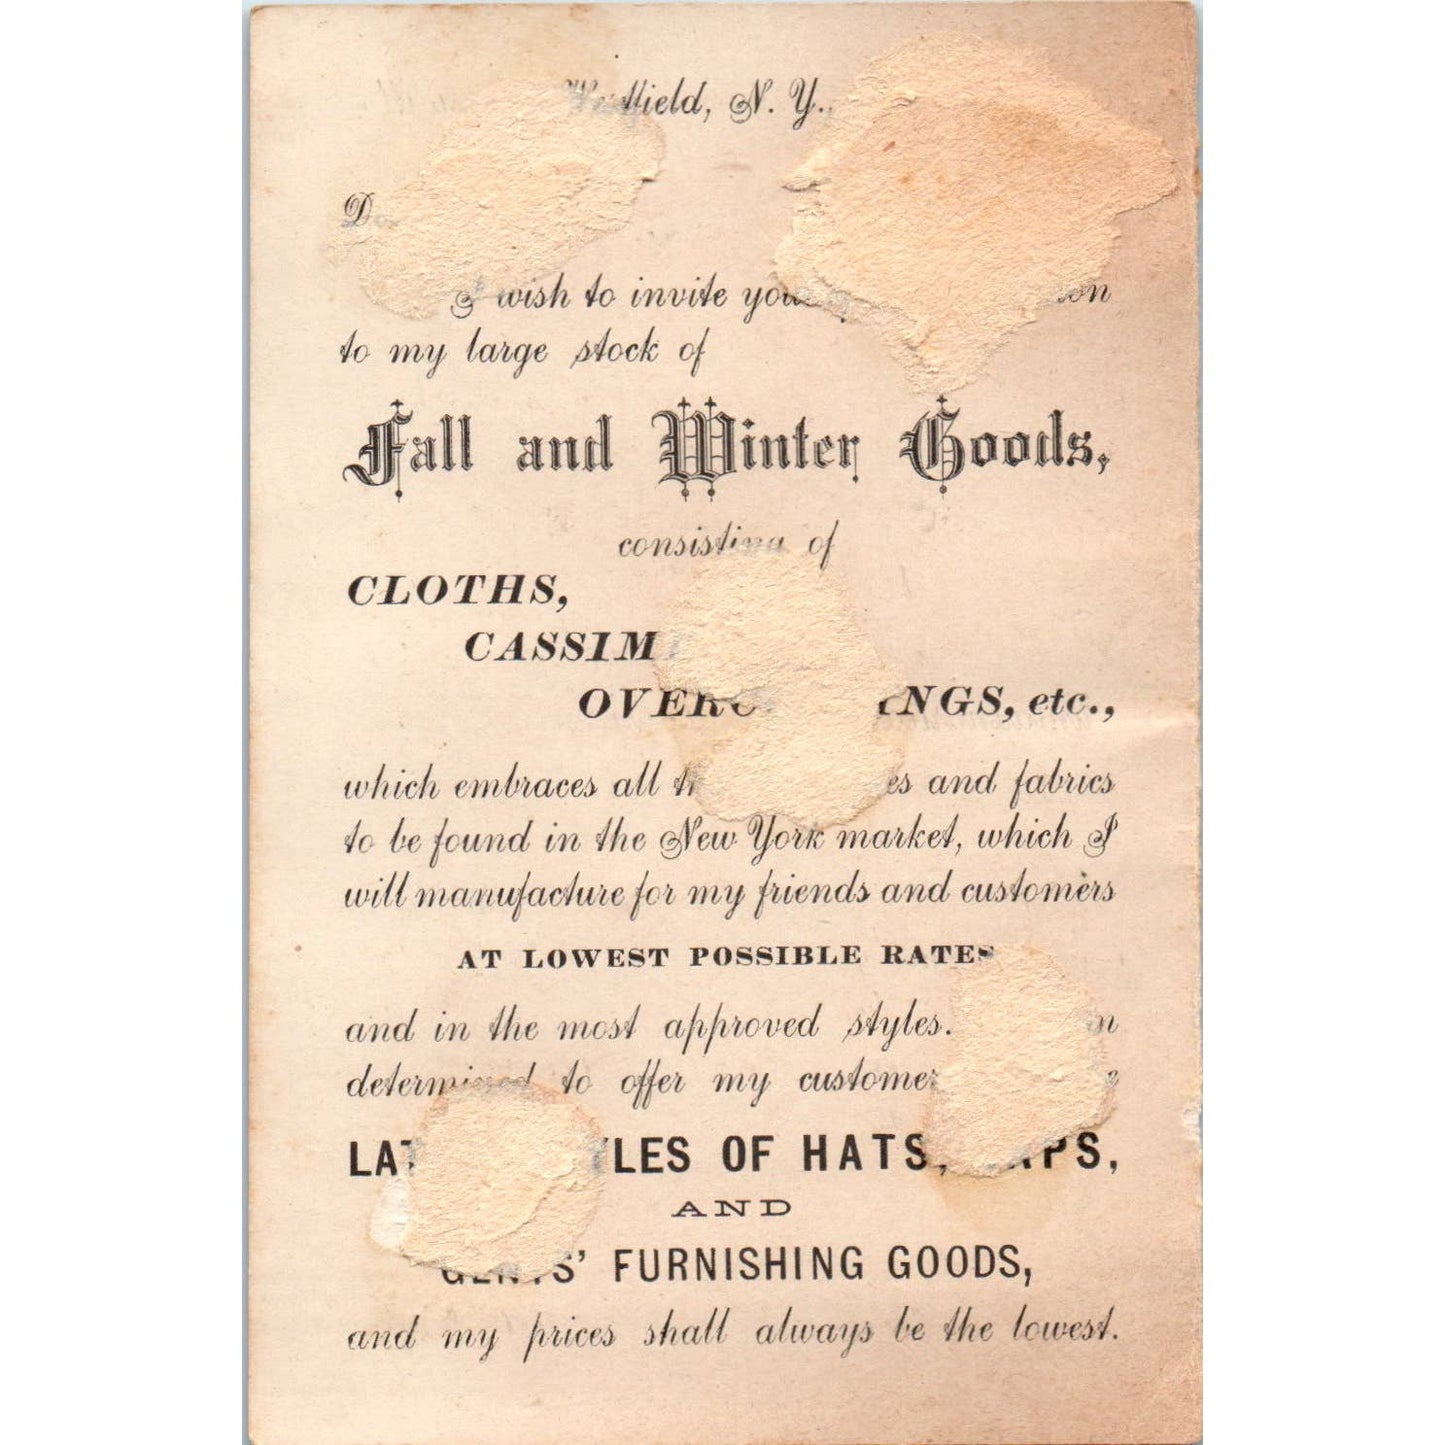 Westfield, N. Y.,
I wish to invite your
to my large stock of
Fall and Winter Goods,
consisting of
CLOTHS,
CASSIM
OVERC INGS, etc.,
which embraces all and fabrics
to be found in the New York market, which I
will manufacture for my friends and customers
AT LOWEST POSSIBLE RATES
and in the most approved styles.
determined to offer my customers
LAT YLES OF HATS, CAPS,
AND
GENTS' FURNISHING GOODS,
and my prices shall always be the lowest.